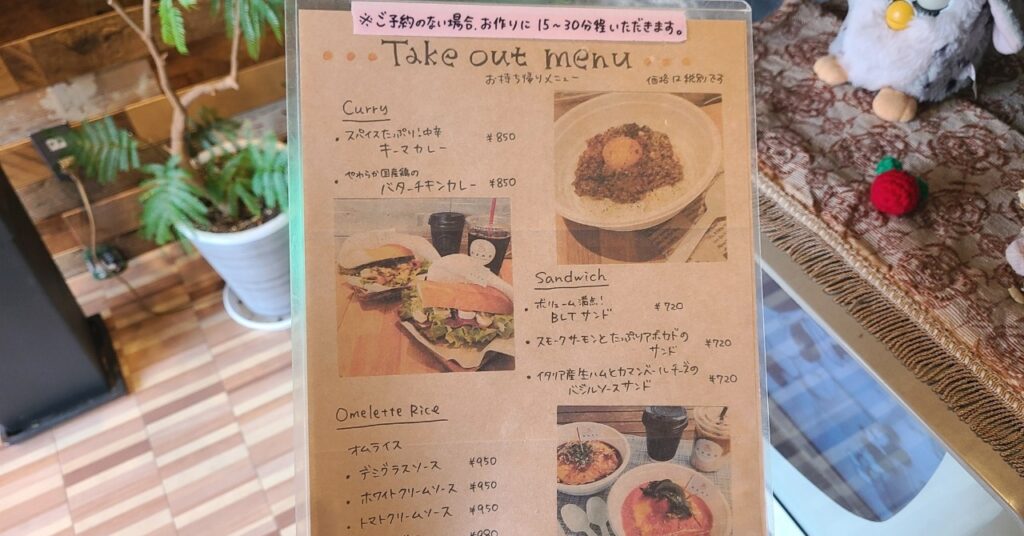 ※ご予約のない場合、お作りに15~30分程いただきます。
Take out menu
お持ち帰りメニュー
価格は税別です
Curry
・スパイスたっぷり!中辛
キーマカレー ¥850
・やわらか国産鶏の
バターチキンカレー ¥850
Sandwich
・ボリューム満点!
BLTサンド ¥720
・スモークサーモンとたっぷりアボカドの
サンド ¥720
・イタリア産生ハムとカマンベールチーズの
バジルソースサンド ¥720
Omelette Rice
オムライス
・デミグラスソース ¥950
・ホワイトクリームソース ¥950
・トマトクリームソース ¥950
¥980